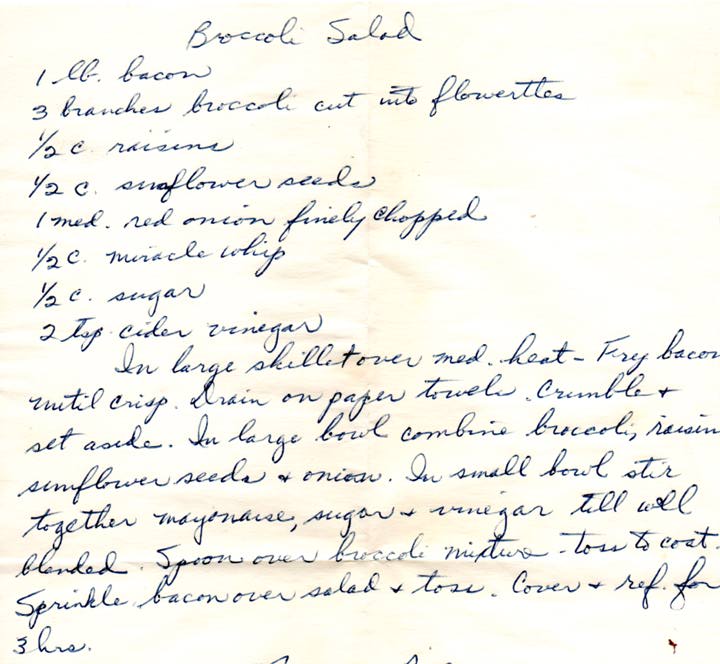 Broccoli Salad
1 lb. bacon
3 branches broccoli cut into flowerttes
1/2 c. raisins
1/2 c. sunflower seeds
1 med. red onion finely chopped
1/2 c. miracle whip
1/2 c. sugar
2 tsp cider vinegar
In large skillet over med. heat - Fry bacon
until crisp. Drain on paper towels. Crumble +
set aside. In large bowl combine broccoli, raisin
sunflower seeds + onion. In small bowl stir
together mayonaise, sugar + vinegar till well
blended. Spoon over broccoli mixture - toss to coat.
Sprinkle bacon over salad + toss. Cover + ref. for
3 hrs.